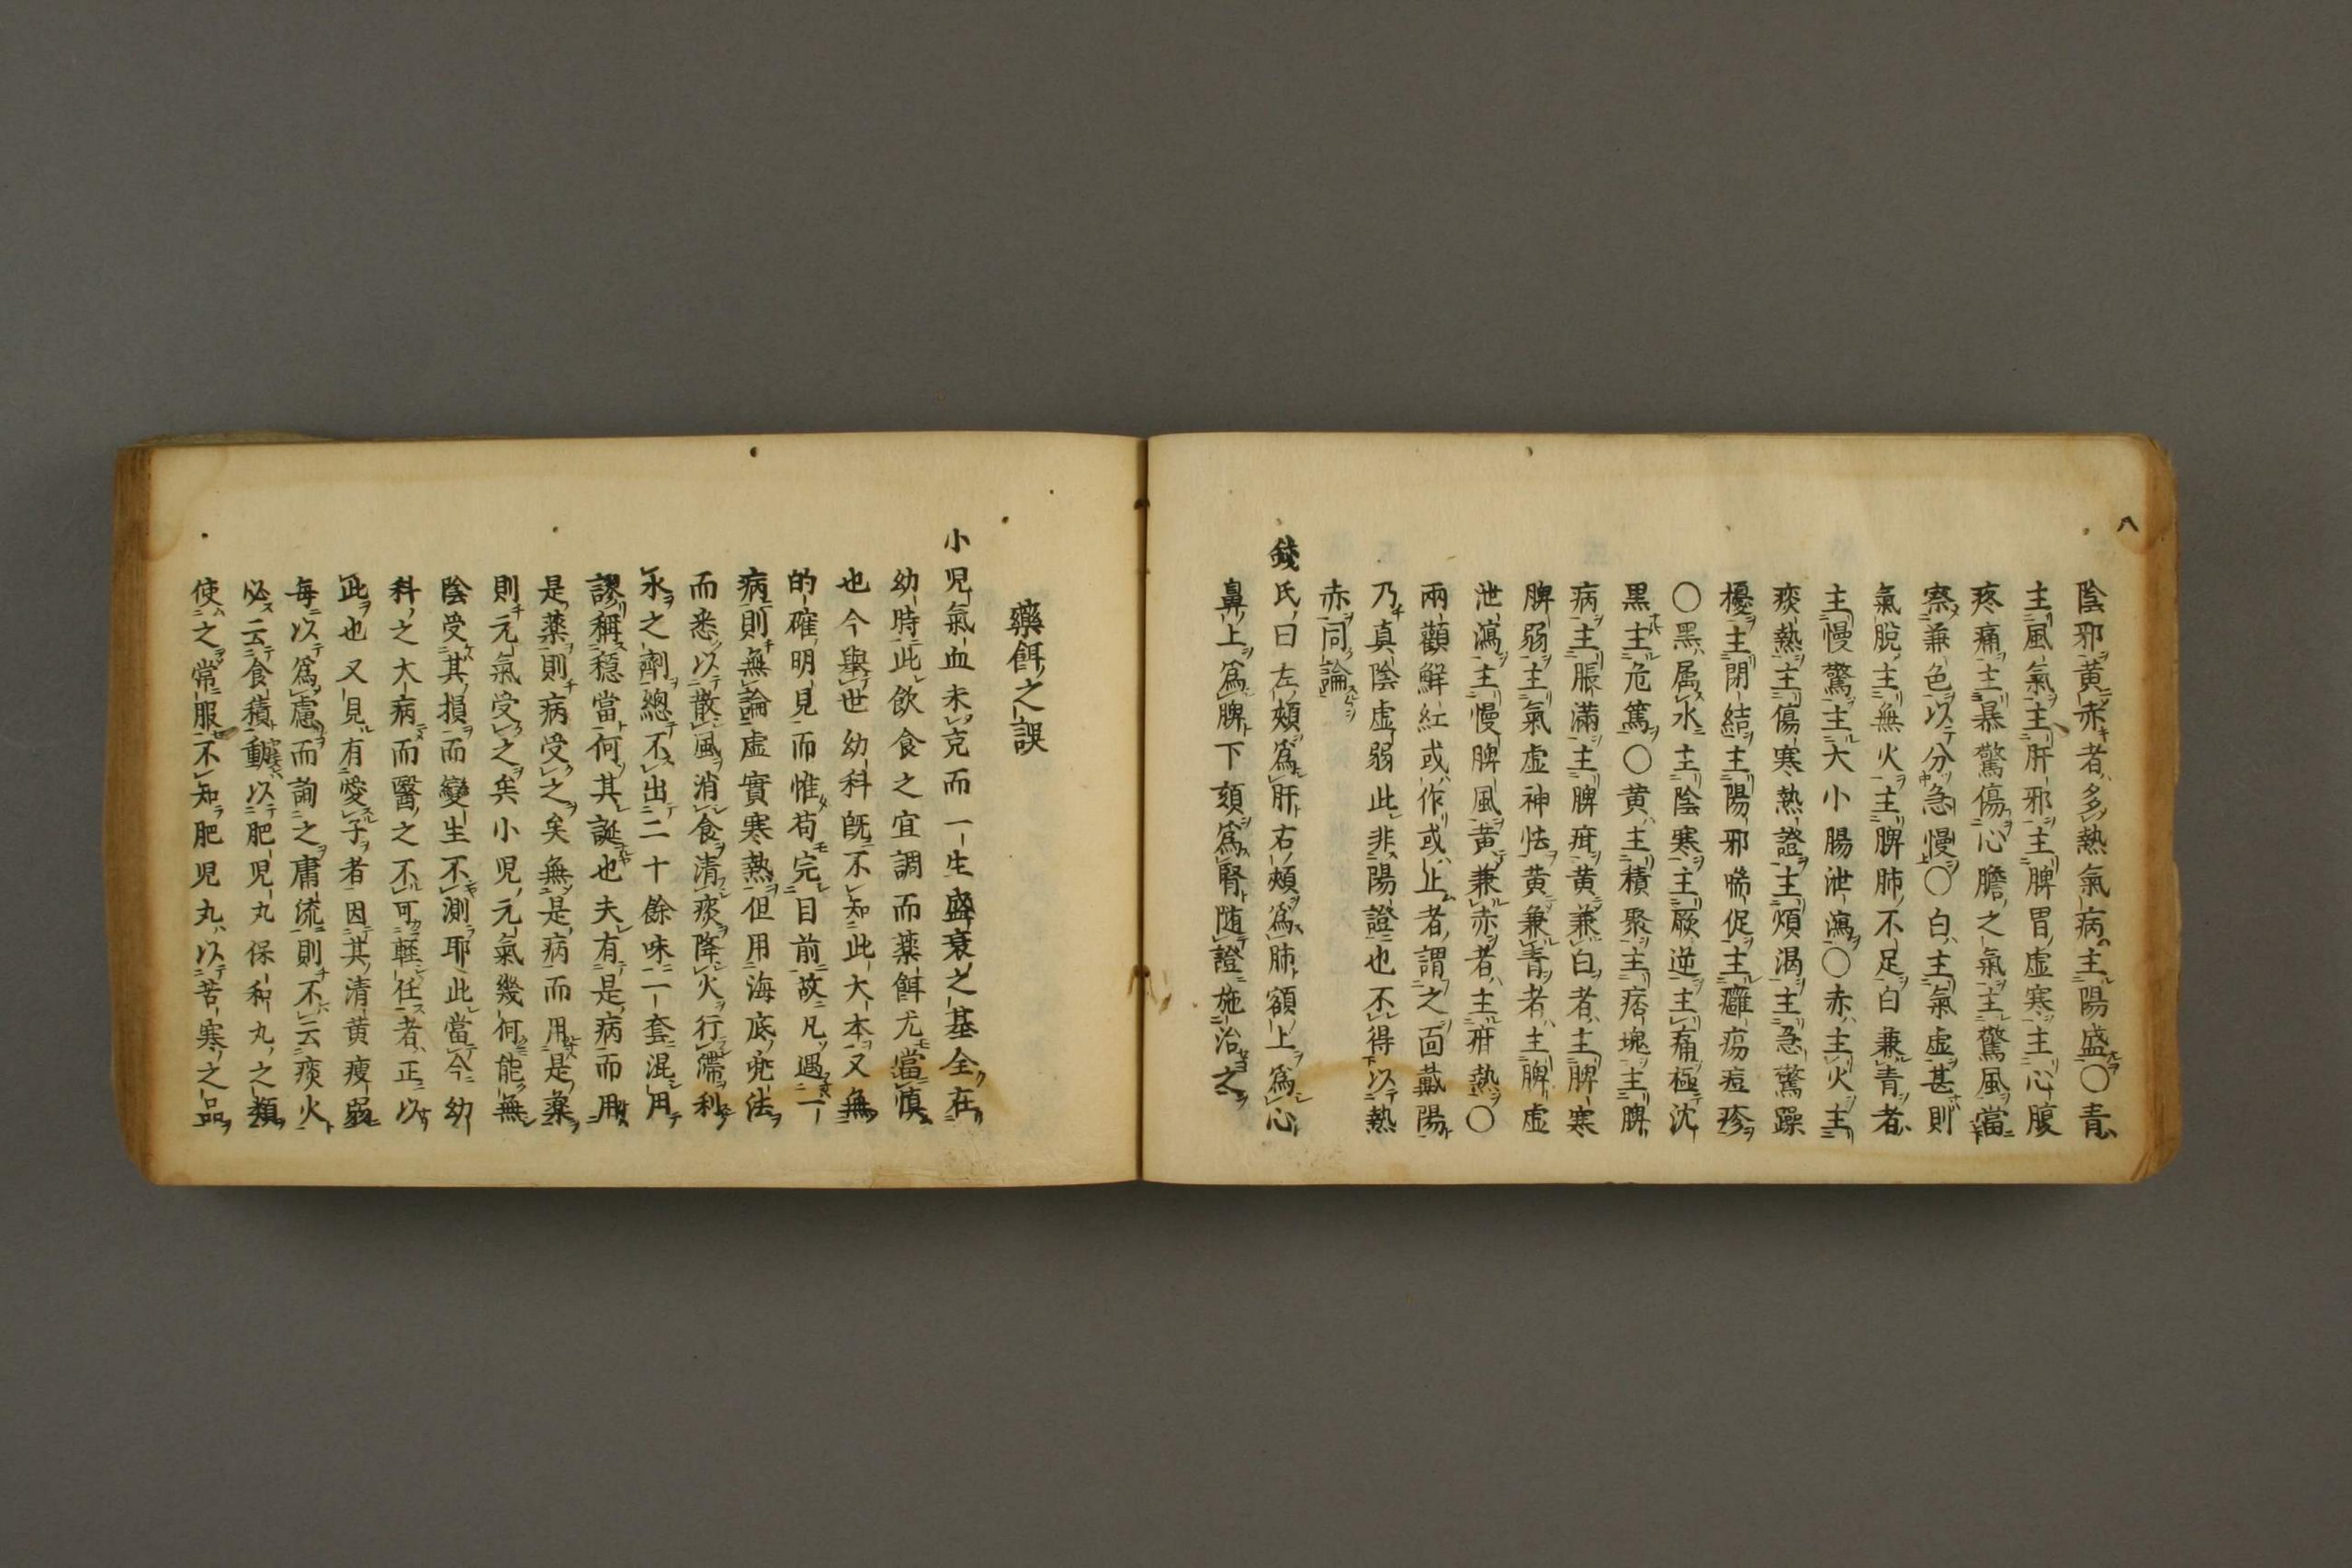 八
陰邪黄赤者多熱氣病主陽盛〇青
主風氣主肝邪主脾胃虚寒主心腹
疼痛主暴驚傷心膽之氣主驚風當
察兼色以分急慢〇白主氣虚甚則
氣脱主無火主脾肺不足白兼青者
主慢驚主大小腸泄瀉〇赤主火主
痰熱主傷寒熱證主煩渇主急驚躁
擾主閉結主陽邪喘促主癰瘍痘疹
〇黒属水主陰寒主厥逆主痛極沈
黒主危篤〇黄主積聚主痞塊主脾
病主脹滿主脾疳黄兼白者主脾寒
脾弱主氣虚神怯黄兼青者主脾虚
泄瀉主慢脾風黄兼赤者主疳熱〇
兩顴鮮紅或作或止者謂之面戴陽
乃真陰虚弱此非陽證也不得以熱
赤同論
錢氏曰左頰為肝右頰為肺額上為心
鼻上為脾下頦為腎随證施治之
藥餌之誤
小児氣血未充而一生盛衰之基全在
幼時此飲食之宜調而藥餌尤當慎
也今舉世幼科既不知此大本又無
的確明見而惟苟完目前故凡遇一
病則無論虚實寒熱但用海底兜法
而悉以散風消食清痰降火行滯利
水之劑總不出二十餘味一套混用
謬稱穏當何其誕也夫有是病而用
是薬則病受之矣無是病而用是藥
則元氣受之矣小児元氣幾何能無
陰受其損而變生不測耶此當今幼
科之大病而醫之不可軽任者正以
此也又見有愛子者因其清黄痩弱
毎以為慮而詢之庸流則不云痰火
必云食積動以肥児丸保和丸之類
使之常服不知肥児丸以苦寒之品